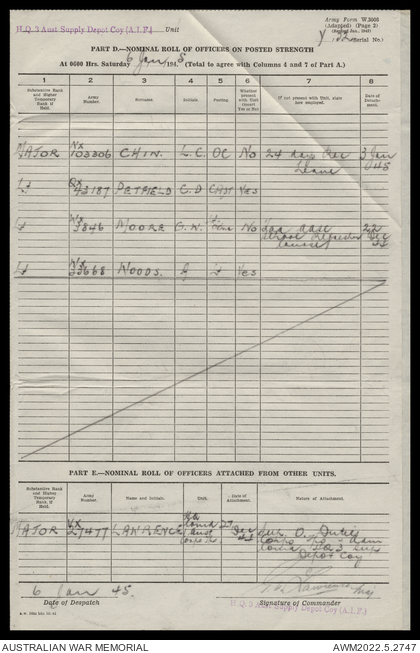 H.Q. 3 Aust Supply Depot Coy (A.I.F.) Unit
Army Form W.3008
(Adapted) (Page 2)
(Revised Jan., 1943)
(Serial No.)
PART D.—NOMINAL ROLL OF OFFICERS ON POSTED STRENGTH
At 0600 Hrs. Saturday 6 Jan /194 5 (Total to agree with Columns 4 and 7 of Part A.)
1 2 3 4 5 6 7 8
Substantive Rank and Higher Temporary Rank if Held. Army Number. Surname. Initials. Posting. Whether present with Unit (Insert Yes or No) If not present with Unit, state how employed. Date of Detachment.
MAJOR NX 103306 CHIN. L.C. OC No 24 days Rec Leave 3 Jan 45
Lt QX 43187 PETFIELD C.D Capt Yes
Lt WX 3846 MOORE G.W. No
Lt 33668 WOODS. Lt Yes
PART E.—NOMINAL ROLL OF OFFICERS ATTACHED FROM OTHER UNITS.
Substantive Rank and Higher Temporary Rank if Held. Army Number. Name and Initials. Unit. Date of Attachment. Nature of Attachment.
MAJOR VX 27477 LAWRENCE Aust Dec 44 Depot Coy
6 Jan 45.
Date of Despatch Signature of Commander
H.Q. 3 Aust Supply Depot Coy (A.I.F.)
AUSTRALIAN WAR MEMORIAL AWM2022.5.2747